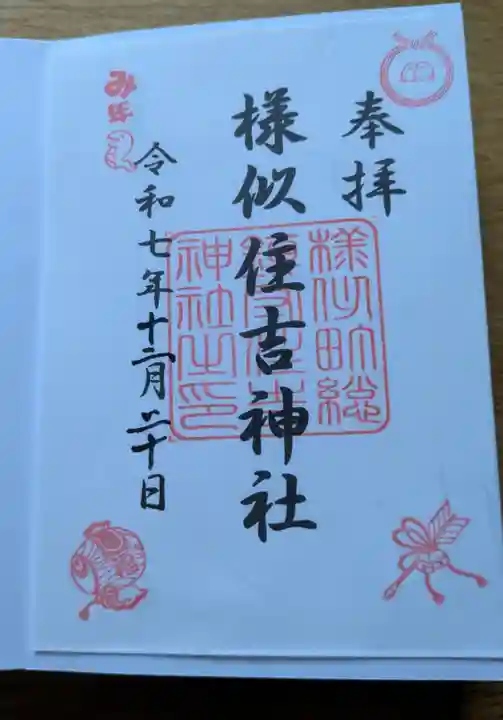 奉拝
様似住吉神社
様似町総
鎮守住吉
神社之印
令和七年十二月二十日
み